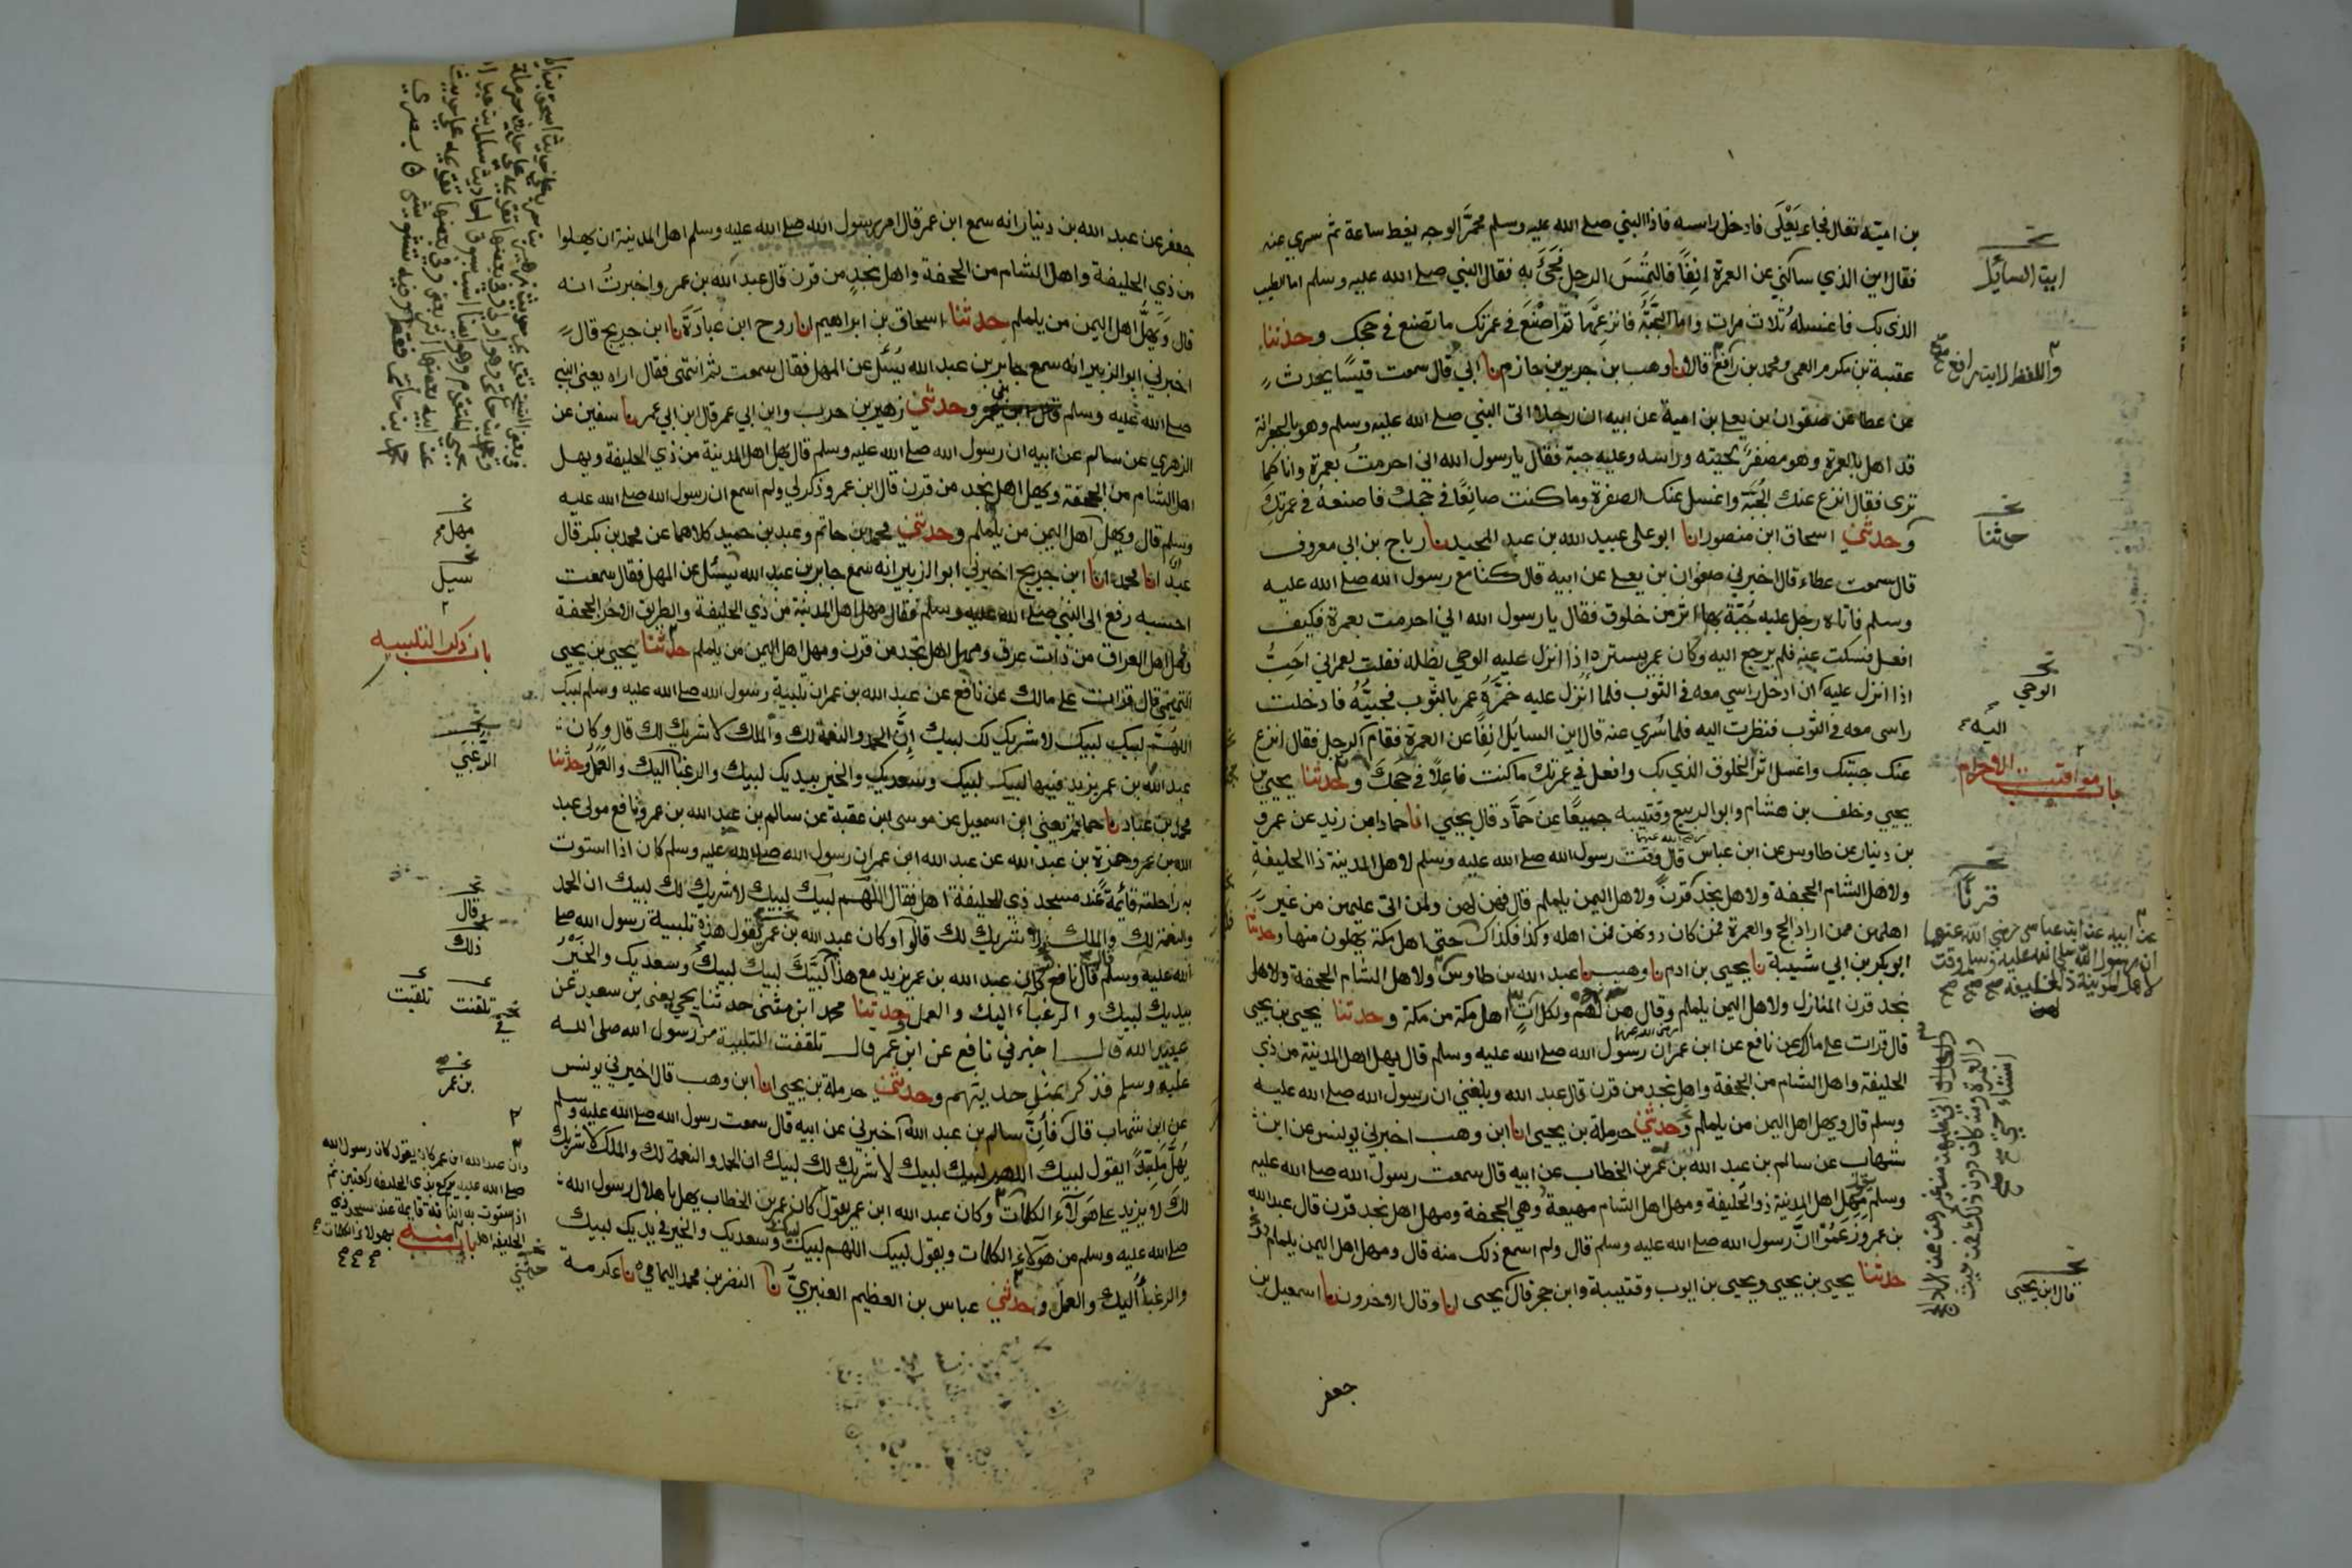 بن امية تعال فجاء يَعْلَى فادخل راسه فاذا النبي صلى الله عليه وسلم محمَّر الوجه يغط ساعة ثم سري عنه
فقال اين الذي سالني عن العمرة انِفًا فالتُمِسَ الرجل فجَيَ به فقال النبي صلى الله عليه وسلم اما الطيب
الذي بك فاغسله ثلاث مرات واما الجبَّة فانزعها ثم اصْنَع في عمرتك ما تصنع في حجك وحدثنا
عقبة بن مكرم العمي ومحمد بن رافع قالا نا وهب بن جرير بن حازم نا ابي قال سمعت قيسًا يحدث
عن عطا عن صفوان بن يعلى بن امية عن ابيه ان رجلا اتى النبي صلى الله عليه وسلم وهو بالجعرانة
قد اهل بالعمرة وهو مصفرٌ لحيته وراسه وعليه جبة فقال يا رسول الله اني احرمتُ بعمرة وانا كما
ترى فقال انزع عنك الجُبَّة واغسل عنك الصفرة وما كنت صانعًا في حجك فاصنعه في عمرتك
وحدثني اسحاق ابن منصور انا ابو علي عبيد الله بن عبد المجيد نا رباح بن ابي معروف
قال سمعت عطاء قال اخبرني صفوان بن يعلى عن ابيه قال كنا مع رسول الله صلى الله عليه
وسلم فاتاه رجل عليه جُبّة بها اثر من خلوق فقال يا رسول الله اني احرمت بعمرة فكيف
افعل فسكت عنه فلم يرجع اليه وكان عمر يستره اذا انزل عليه الوحي يظله فقلت لعمر اني احَبُّ
اذا انزل عليه ان ادخل راسي معه في الثوب فلما اُنزل عليه خمَّرَهُ عمر بالثوب فجيتُهُ فادخلت
راسي معه في الثوب فنظرت اليه فلما سُري عنه قال اين السايل انِفًا عن العمرة فقام اليه الرجل فقال انزع
عنك جبتك واغسل اثر الخلوق الذي بك وافعل في عمرتك ما كنت فاعلًا في حجكَ وحدثنا يحيى بن
يحيى وخلف بن هشام وابو الربيع وقتيبه جميعًا عن حمَّاد قال يحيى انا حماد بن زيد عن عمرو
بن دينار عن طاوس عن ابن عباس قال وقت رسول الله صلى الله عليه وسلم لاهل المدينة ذا الحليفة
ولاهل الشام الجحفة ولاهل نجد قرنٌ ولاهل اليمن يلملم قال فهن لهن ولمن اتى عليهن من غير
اهلهن ممن اراد الحج والعمرة فمن كان دونهن فمن اهله وكذا فكذاك حتى اهل مكة يهلون منها وحدثنا
ابو بكر بن ابي شيبة نا يحيى بن ادم نا وهيب نا عبد الله بن طاوس ولاهل الشام الجحفة ولاهل
نجد قرن المنازل ولاهل اليمن يلملم وقال هن لهم ولكل آتٍ اهل مكة من مكة وحدثنا يحيى بن يحيى
قال قرات على مالك عن نافع عن ابن عمر ان رسول الله صلى الله عليه وسلم قال يهل اهل المدينة من ذي
الحليفة واهل الشام من الجحفة واهل نجد من قرن قال عبد الله وبلغني ان رسول الله صلى الله عليه
وسلم قال ويهل اهل اليمن من يلملم وحدثني حرملة بن يحيى انا ابن وهب اخبرني يونس عن ابن
شهاب عن سالم بن عبد الله بن عمر بن الخطاب عن ابيه قال سمعت رسول الله صلى الله عليه
وسلم مهل اهل المدينة ذو الحليفة ومهل اهل الشام مهيعة وهي الجحفة ومهل اهل نجد قرن قال عبد الله
بن عمر وزعَمُوْا انَّ رسول الله صلى الله عليه وسلم قال ولم اسمع ذلك منه قال ومهل اهل اليمن يلملم
حدثنا يحيى بن يحيى ويحيى بن ايوب وقتيبة وابن حجر قال يحيى انا وقال الاخرون نا اسمعيل بن
جعفر
اين السائل
واللفظ لابن رافع
حدثنا
الوحي
اليه
باب مواقيت الاحرام
قرنًا
عن ابيه عن ابن عباس رضي الله عنهما
ان رسول الله صلى الله عليه وسلم وقت
لاهل المدينة ذا الحليفة صح صح صح
لهن
قال ابن يحيى
جعفر عن عبد الله بن دينار انه سمع ابن عمر قال امر رسول الله صلى الله عليه وسلم اهل المدينة ان يهلوا
من ذي الحليفة واهل الشام من الجحفة واهل نجدٍ من قرن قال عبد الله بن عمر واخبرتُ انه
قال وَيُهلُّ اهل اليمن من يلملم حدثنا اسحاق بن ابراهيم انا روح ابن عبَادَةَ نا ابن جريج قال
اخبرني ابو الزبير انه سمع جابر بن عبد الله يُسْئل عن المهل فقال سمعت ثم انتهى فقال اراه يعني النبي
صلى الله عليه وسلم وحدثني زهير بن حرب وابن ابي عمر قال ابن ابي عمر نا سفين عن
الزهري عن سالم عن ابيه ان رسول الله صلى الله عليه وسلم قال يهل اهل المدينة من ذي الحليفة ويهل
اهل الشام من الجحفة ويهل اهل نجد من قرن قال ابن عمر وذكر لي ولم اسمع ان رسول الله صلى الله عليه
وسلم قال ويهل اهل اليمن من يلملم وحدثني محمد بن حاتم وعبد بن حميد كلاهما عن محمد بن بكر قال
عبدٌ انا محمد انا ابن جريج اخبرني ابو الزبير انه سمع جابر بن عبد الله يُسْئل عن المهل فقال سمعت
احسبه رفع الى النبي صلى الله عليه وسلم فقال مهل اهل المدينة من ذي الحليفة والطريق الاخر الجحفة
ومهل اهل العراق من ذات عرق ومهل اهل نجد من قرن ومهل اهل اليمن من يلملم حدثنا يحيى بن يحيى
التميمي قال قرات على مالك عن نافع عن عبد الله بن عمر ان تلبية رسول الله صلى الله عليه وسلم لبيك
اللهم لبيك لبيك لا شريك لك لبيك اِنَّ الحمد والنعمة لك والملك لا شريك لك قال وكان
عبد الله بن عمر يزيد فيها لبيك لبيك وسعديك والخير بيديك لبيك والرغبا اليك والعمل وحدثنا
محمد بن عباد نا حاتم يعني ابن اسمعيل عن موسى بن عقبة عن سالم بن عبد الله بن عمر ونافع مولى عبد
الله بن عمر وحمزة بن عبد الله عن عبد الله ابن عمر ان رسول الله صلى الله عليه وسلم كان اذا استوت
به راحلته قائمة عند مسجد ذي الحليفة اهل فقال اللهم لبيك لبيك لا شريك لك لبيك ان الحمد
والنعمة لك والملك لا شريك لك قالوا وكان عبد الله بن عمر يقول هذه تلبية رسول الله صلى
الله عليه وسلم قال نافع كان عبد الله بن عمر يزيد مع هذا لبيَّكَ لبيك لبيك وسعديك والخير
بيديك لبيك والرغباء اليك والعمل وحدثنا محمد ابن مثنى حدثنا يحيى يعني بن سعيد عن
عبيد الله قال اخبرني نافع عن ابن عمر قال تلقفت التلبية من رسول الله صلى الله
عليه وسلم فذكر بمثل حديثهم وحدثني حرملة بن يحيى انا ابن وهب قال اخبرني يونس
عن ابن شهاب قال فانَّ سالم بن عبد الله اخبرني عن ابيه قال سمعت رسول الله صلى الله عليه وسلم
يُهلُّ مُلبّدًا يقول لبيك اللهم لبيك لبيك لا شريك لك لبيك ان الحمد والنعمة لك والملك لا شريك
لك لا يزيد على هَولآء الكلمات وكان عبد الله ابن عمر يقول كان عمر بن الخطاب يهل باهلال رسول الله
صلى الله عليه وسلم من هوَلآء الكلمات ويقول لبيك اللهم لبيك وسعديك والخير في يديك لبيك
والرغبآء اليك والعمل وحدثني عباس بن العظيم العنبريُّ نا النضر بن محمد اليمامي نا عكرمة
مهل
سيل
باب ذكر التلبيه
الرغبَي
قال
ذلك
تلقنت تلقيت
بن عمر
وان عبد الله ابن عمر كان يقول كان رسول الله
صلى الله عليه يركع بذي الحليفه ركعتين ثم
اذا ستوت به الناقة قائمة عند مسجد ذي
الحليفه اهل بهولاء الكلمات
باب منه
حدثني